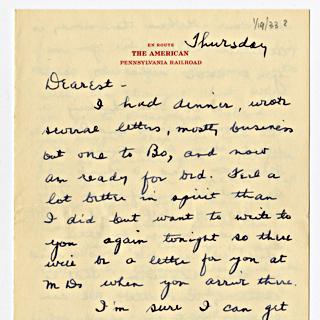 1/19/33 ?
EN ROUTE
Thursday
THE AMERICAN
PENNSYLVANIA RAILROAD
Dearest -
I had dinner, wrote
several letters, mostly business
but one to Bo, and now
am ready for bed. Feel a
lot better in spirit than
I did but want to write to
you again tonight so there
will be a letter for you at
when you arrive there.
I'm sure I can get